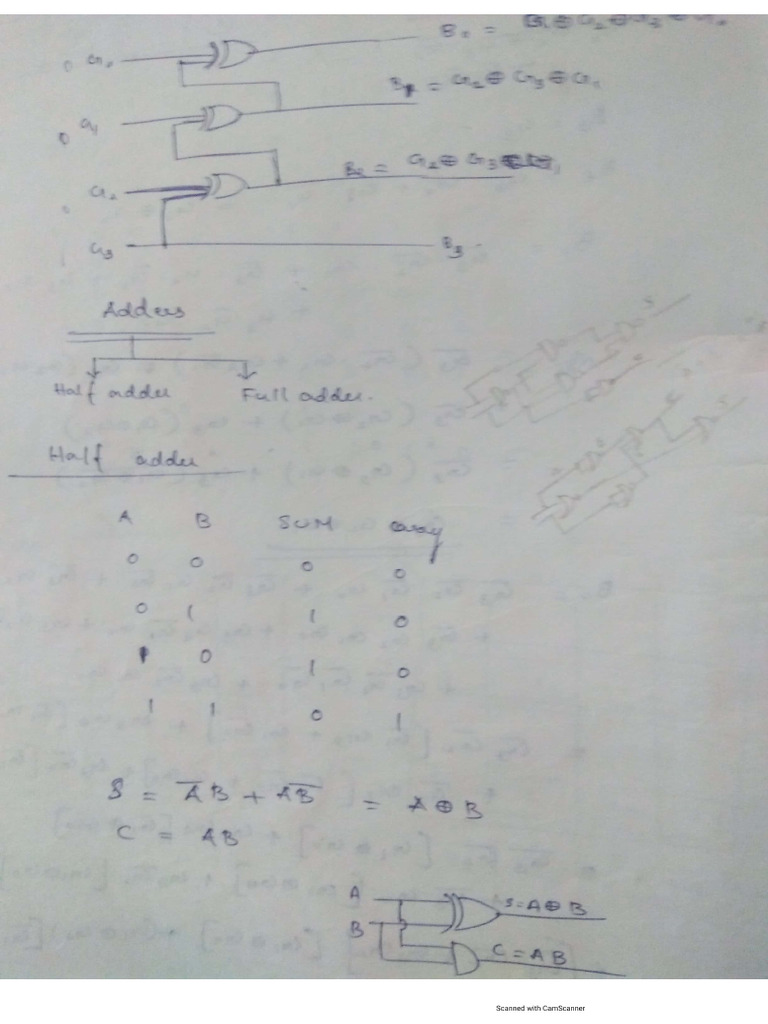 G₀
B₁ = G₂ ⊕ G₃ ⊕ G₁
0 G₁
B₂ = G₂ ⊕ G₃
G₂
G₃ B₃
Adders
Half adder Full adder.
Half adder
A B SUM Carry
0 0 0 0
0 1 1 0
1 0 1 0
1 1 0 1
S = A̅B + AB̅ = A ⊕ B
C = AB
A S = A ⊕ B
B C = AB
Scanned with CamScanner